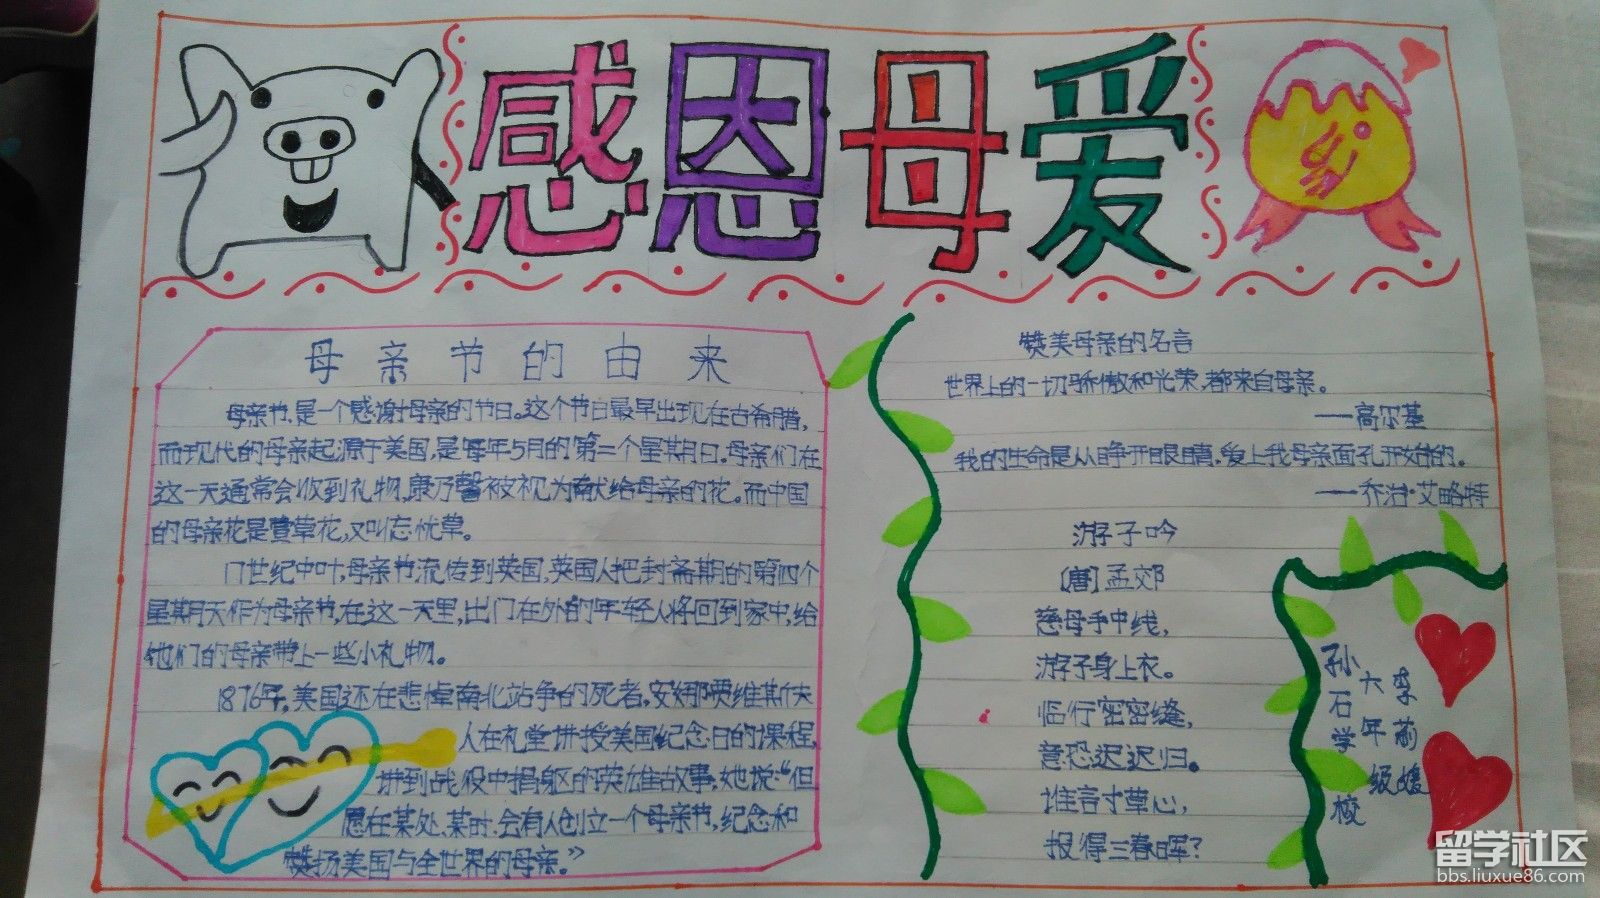 感恩母爱
母亲节的由来
母亲节,是一个感谢母亲的节日。这个节日最早出现在古希腊,
而现代的母亲起源于美国,是每年5月的第二个星期日。母亲们在
这一天通常会收到礼物,康乃馨被视为献给母亲的花。而中国
的母亲花是萱草花,又叫忘忧草。
17世纪中叶,母亲节流传到英国,英国人把封斋期的第四个
星期天作为母亲节,在这一天里,出门在外的年轻人将回到家中,给
他们的母亲带上一些小礼物。
1876年,美国还在悲悼南北站争的死者,安娜贾维斯夫
人在礼堂讲授美国纪念日的课程,
讲到战役中捐躯的英雄故事,她说:“但
愿在某处、某时,会有人创立一个母亲节,纪念和
赞扬美国与全世界的母亲。”
赞美母亲的名言
世界上的一切骄傲和光荣,都来自母亲。
——高尔基
我的生命是从睁开眼睛,爱上我母亲面孔开始的。
——乔治·艾略特
游子吟
〔唐〕孟郊
慈母手中线,
游子身上衣。
临行密密缝,
意恐迟迟归。
谁言寸草心,
报得三春晖?
孙石学校
六年级
李前媛
留学社区
bbs.liuxue86.com